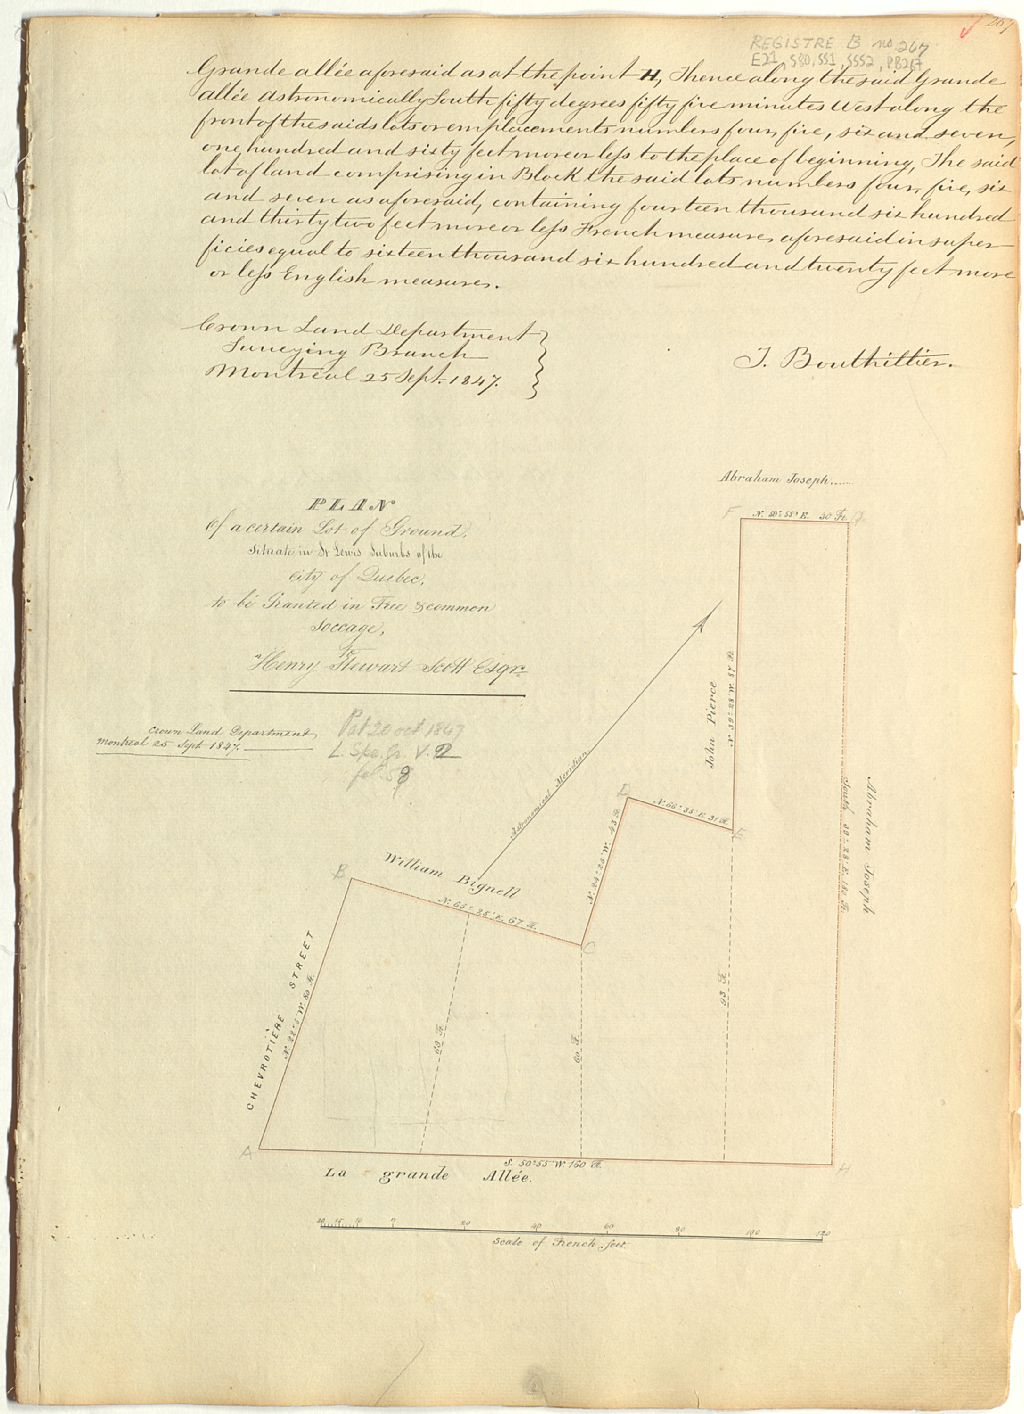 267
REGISTRE B no 267
E21, S80, SS1, SSS2, PB267
Grande allée aforesaid as at the point H, Thence along the said Grande
allée Astronomically South fifty degrees fifty five minutes West along the
front of the saids lots or emplacements numbers four, five, six and seven,
one hundred and sixty feet more or less to the place of beginning, The said
lot of land comprising in Block the said lots numbers four, five, six
and seven as aforesaid, containing fourteen thousand six hundred
and thirty two feet more or less French measure, aforesaid in super-
ficies equal to sixteen thousand six hundred and twenty feet more
or less English measures.
Crown Land Department
Surveying Branch
Montreal 25 Sept. 1847.
T. Bouthillier.
PLAN
Of a certain Lot of Ground,
Situate in St Lewis Suburbs of the
City of Quebec,
to be Granted in Free & common
Soccage,
To
Henry Stewart Scott Esqr.
Crown Land Department,
Montreal 25 Sept 1847.
Pat 20 oct 1847
L. V. 2
fol. 58
Abraham Joseph
F
N. 50° 55' E. 30 Ft.
G
John Pierce
Astronomical Meridian
D
N. 66° 35' E. 31 Ft.
E
Abraham Joseph
B
William Bignell
N. 65° 25' E. 67 Ft.
C
CHEVROTIÈRE STREET
60 Ft.
60 Ft.
93 Ft.
A
S. 50° 55' W. 160 Ft.
H
La grande Allée.
20 40 60 80 100 120
Scale of French feet.